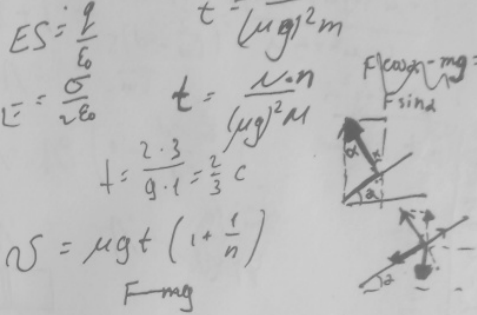 ES = q/ε₀
t = /(μg)²m
E = σ/2ε₀
t = N·n/(μg)²M
F(cosα - mg =
F sinα
t = 2·3/9·1 = 2/3 c
α
α
v = μgt (1 + 1/n)
α
F - mg